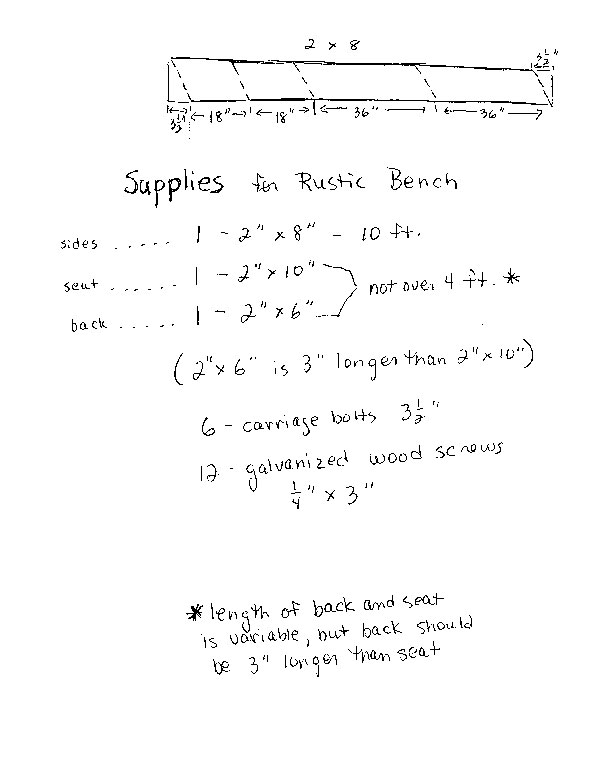 2 x 8
3 1/2"
3 1/2" 18" 18" 36" 36"
Supplies for Rustic Bench
sides ..... 1 - 2" x 8" - 10 ft.
seat ...... 1 - 2" x 10"
not over 4 ft. *
back ..... 1 - 2" x 6"
(2" x 6" is 3" longer than 2" x 10")
6 - carriage bolts 3 1/2"
12 - galvanized wood screws
1/4" x 3"
* length of back and seat
is variable, but back should
be 3" longer than seat